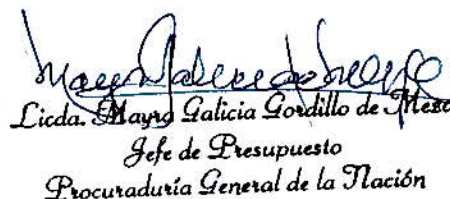 Licda. Mayra Galicia Gordillo de
Jefe de Presupuesto
Procuraduría General de la Nación